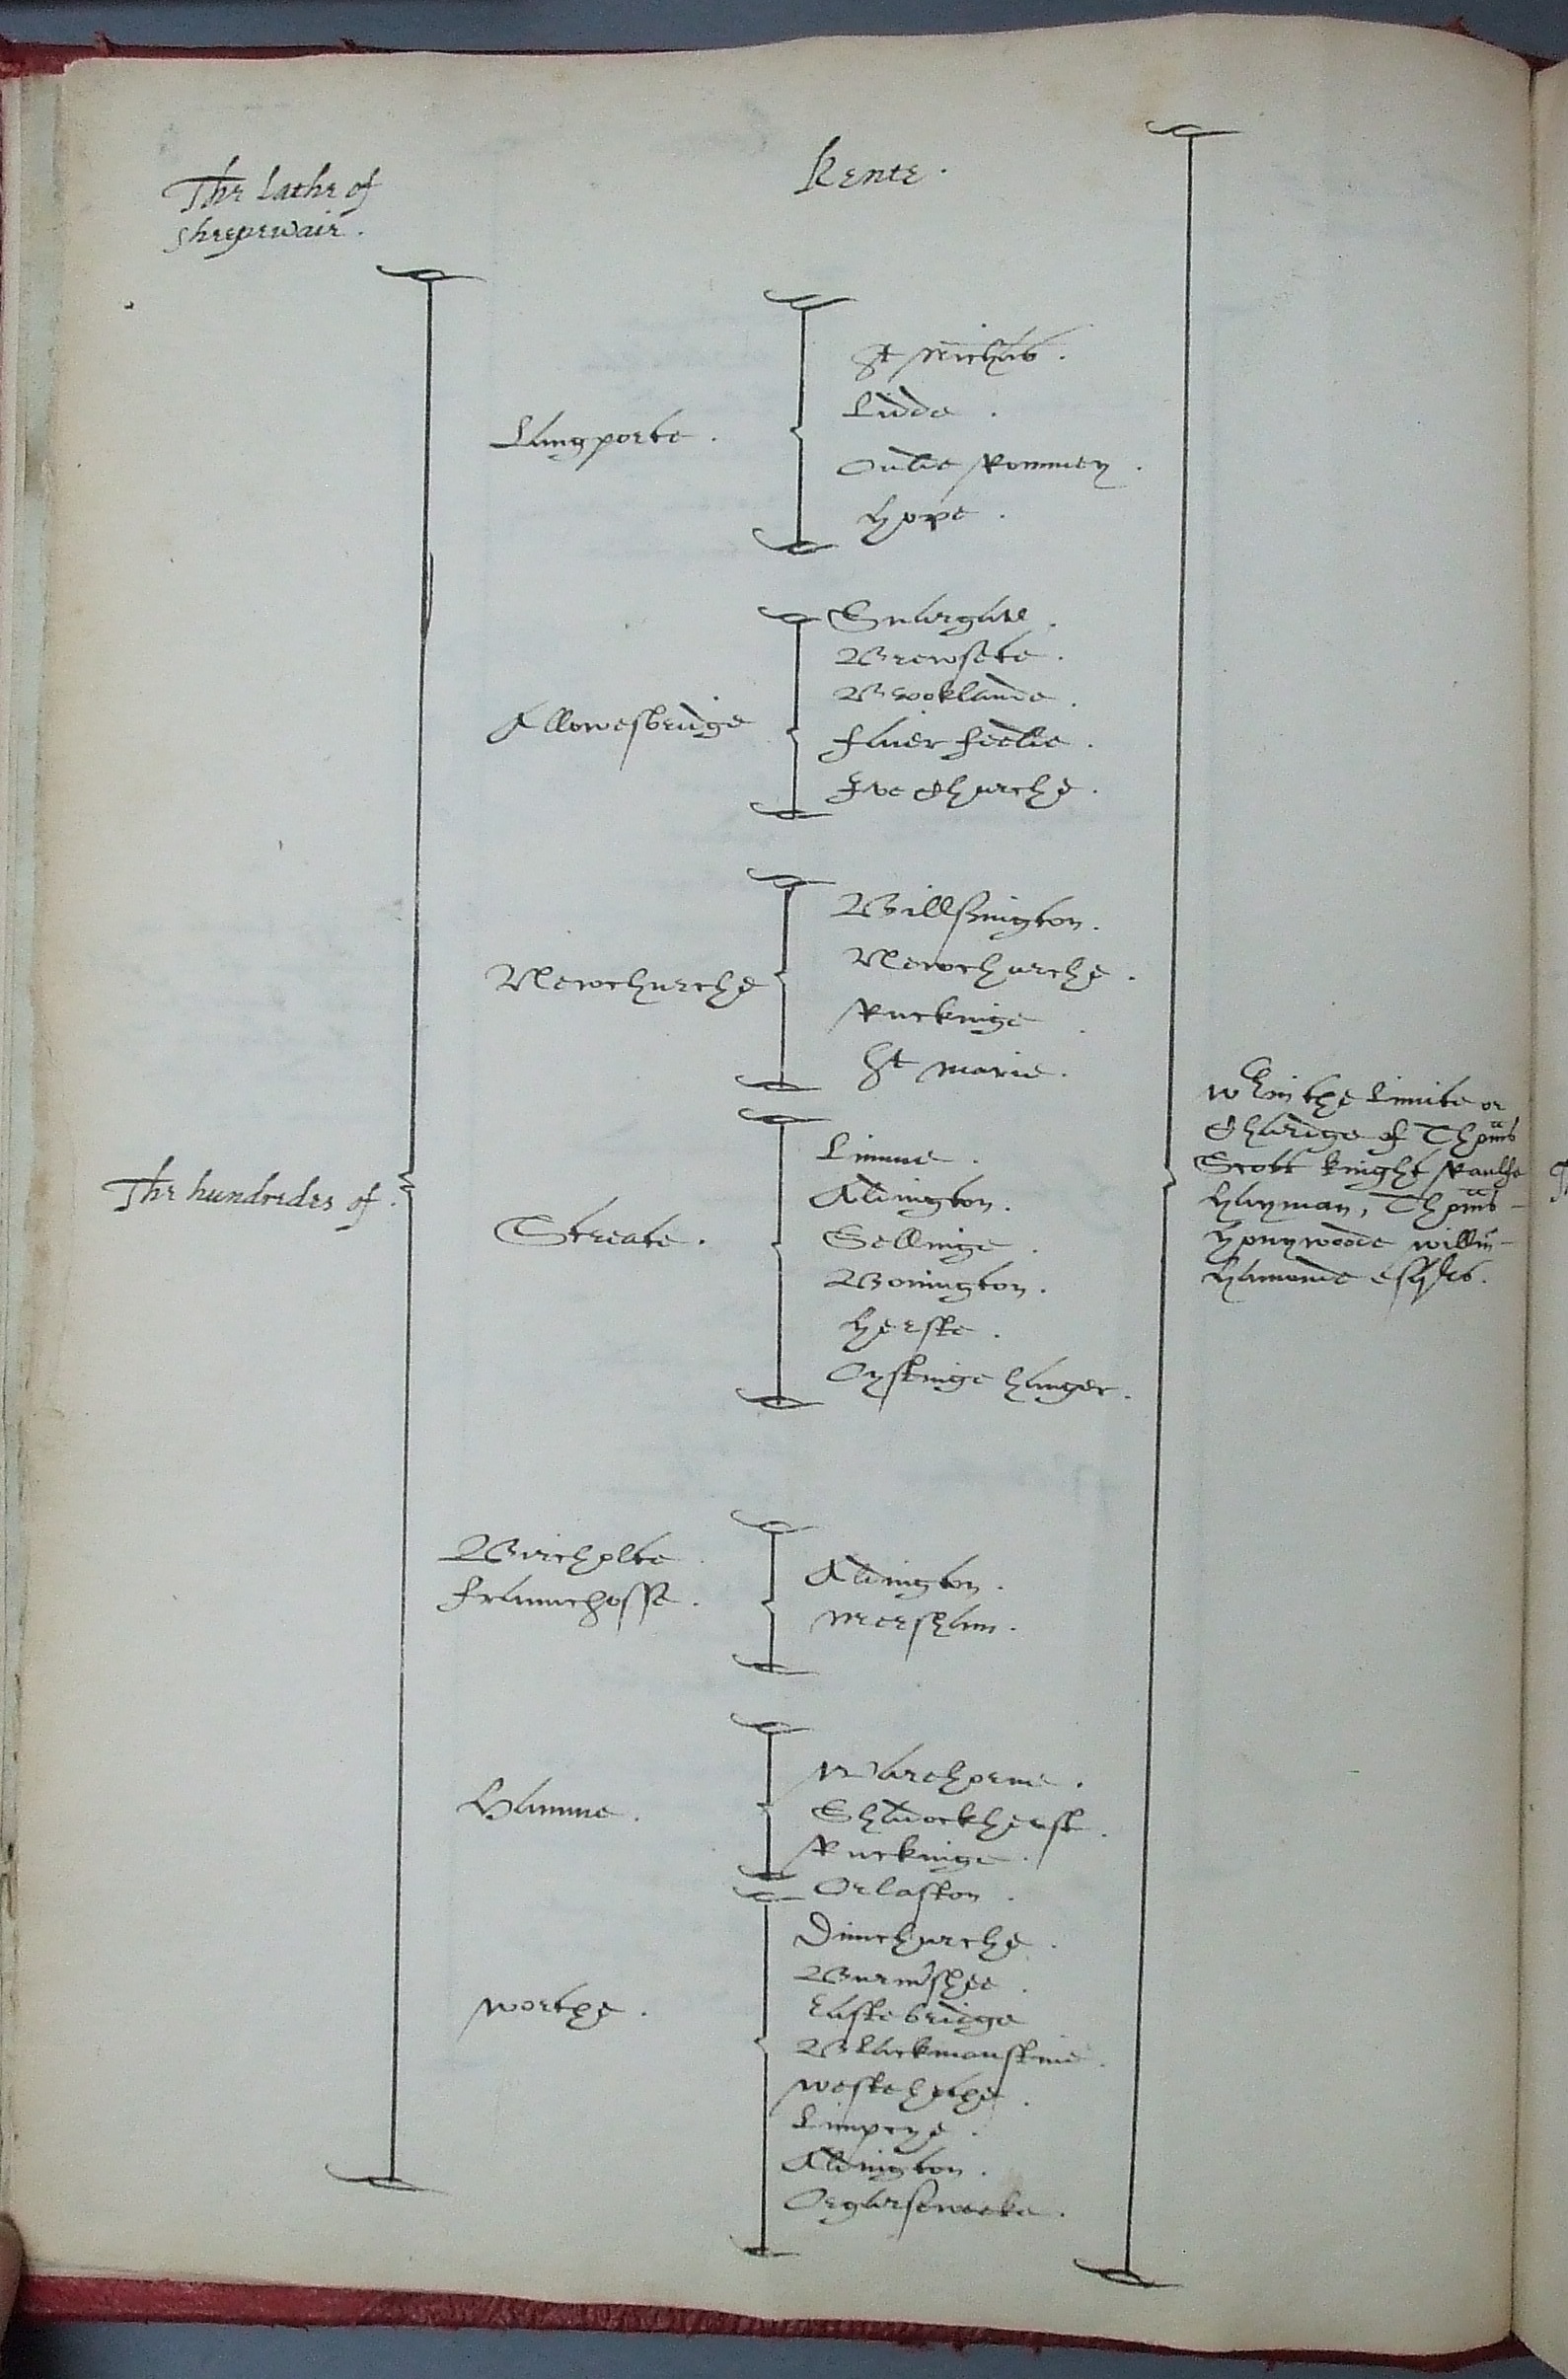 Kente.
The Lathe of
Shepewaie.
The hundredes of.
Langporte.
St Nichãs.
Lidde.
Oulde Romney.
Hope.
Allowesbridge
Snargate.
Brewsete.
Brooklande.
Faierfeelde.
Ive Churche.
Newchurche
Billsington.
Newchurche.
Ruckinge
St Marie.
Streate.
Limme.
Aldington.
Sellinge.
Bonington.
Herste.
Ostinge hanger.
Bircholte
Franchosse.
Aldington.
Mersham.
Hamme.
Warehorne.
Shadoxherst.
Ruckinge.
Orlaston.
Worthe.
Dimchurche.
Burmshee.
Eastebridge
Blackmanstone.
Westehethe.
Limpeye.
Aldington.
Orgarsweeke.
wthin the Limite or
Charidge of Thom̃s
Scott knight Raulfe
Hayman, Thom̃s
Honywoode Willm̃
Hamonde esqrs.